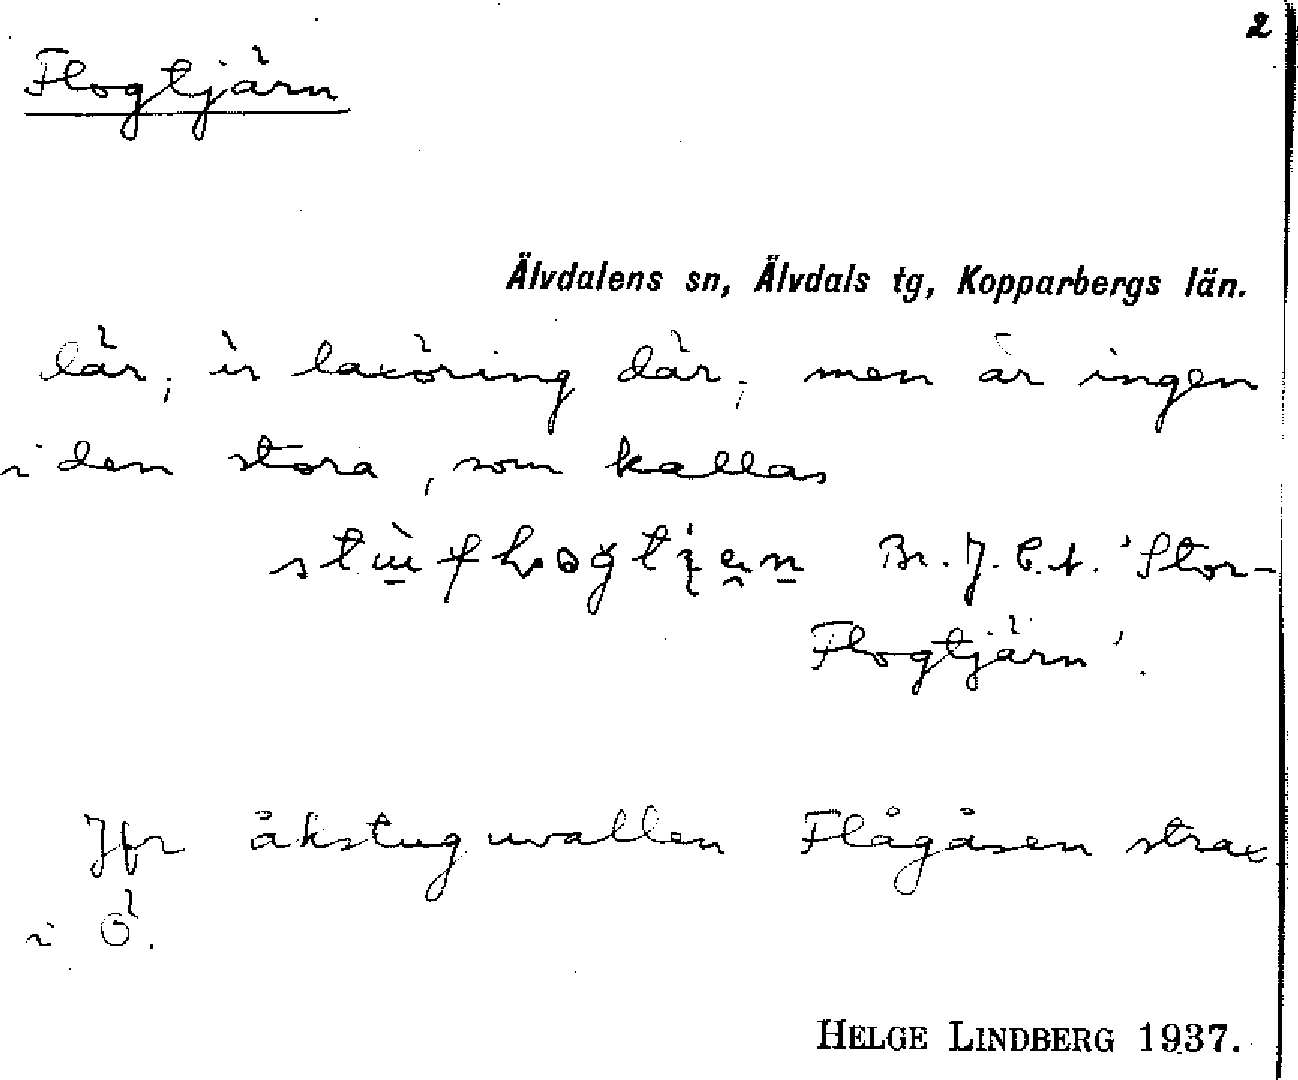 2
Flogtjärn
Älvdalens sn, Älvdals tg, Kopparbergs län.
lär, är laxöring där, men är ingen
i den stora, som kallas
Br. J. E. A. 'Stor-
Flogtjärn'.
Jfr åkstuguvallen Flågåsen strax
i Ö.
HELGE LINDBERG 1937.